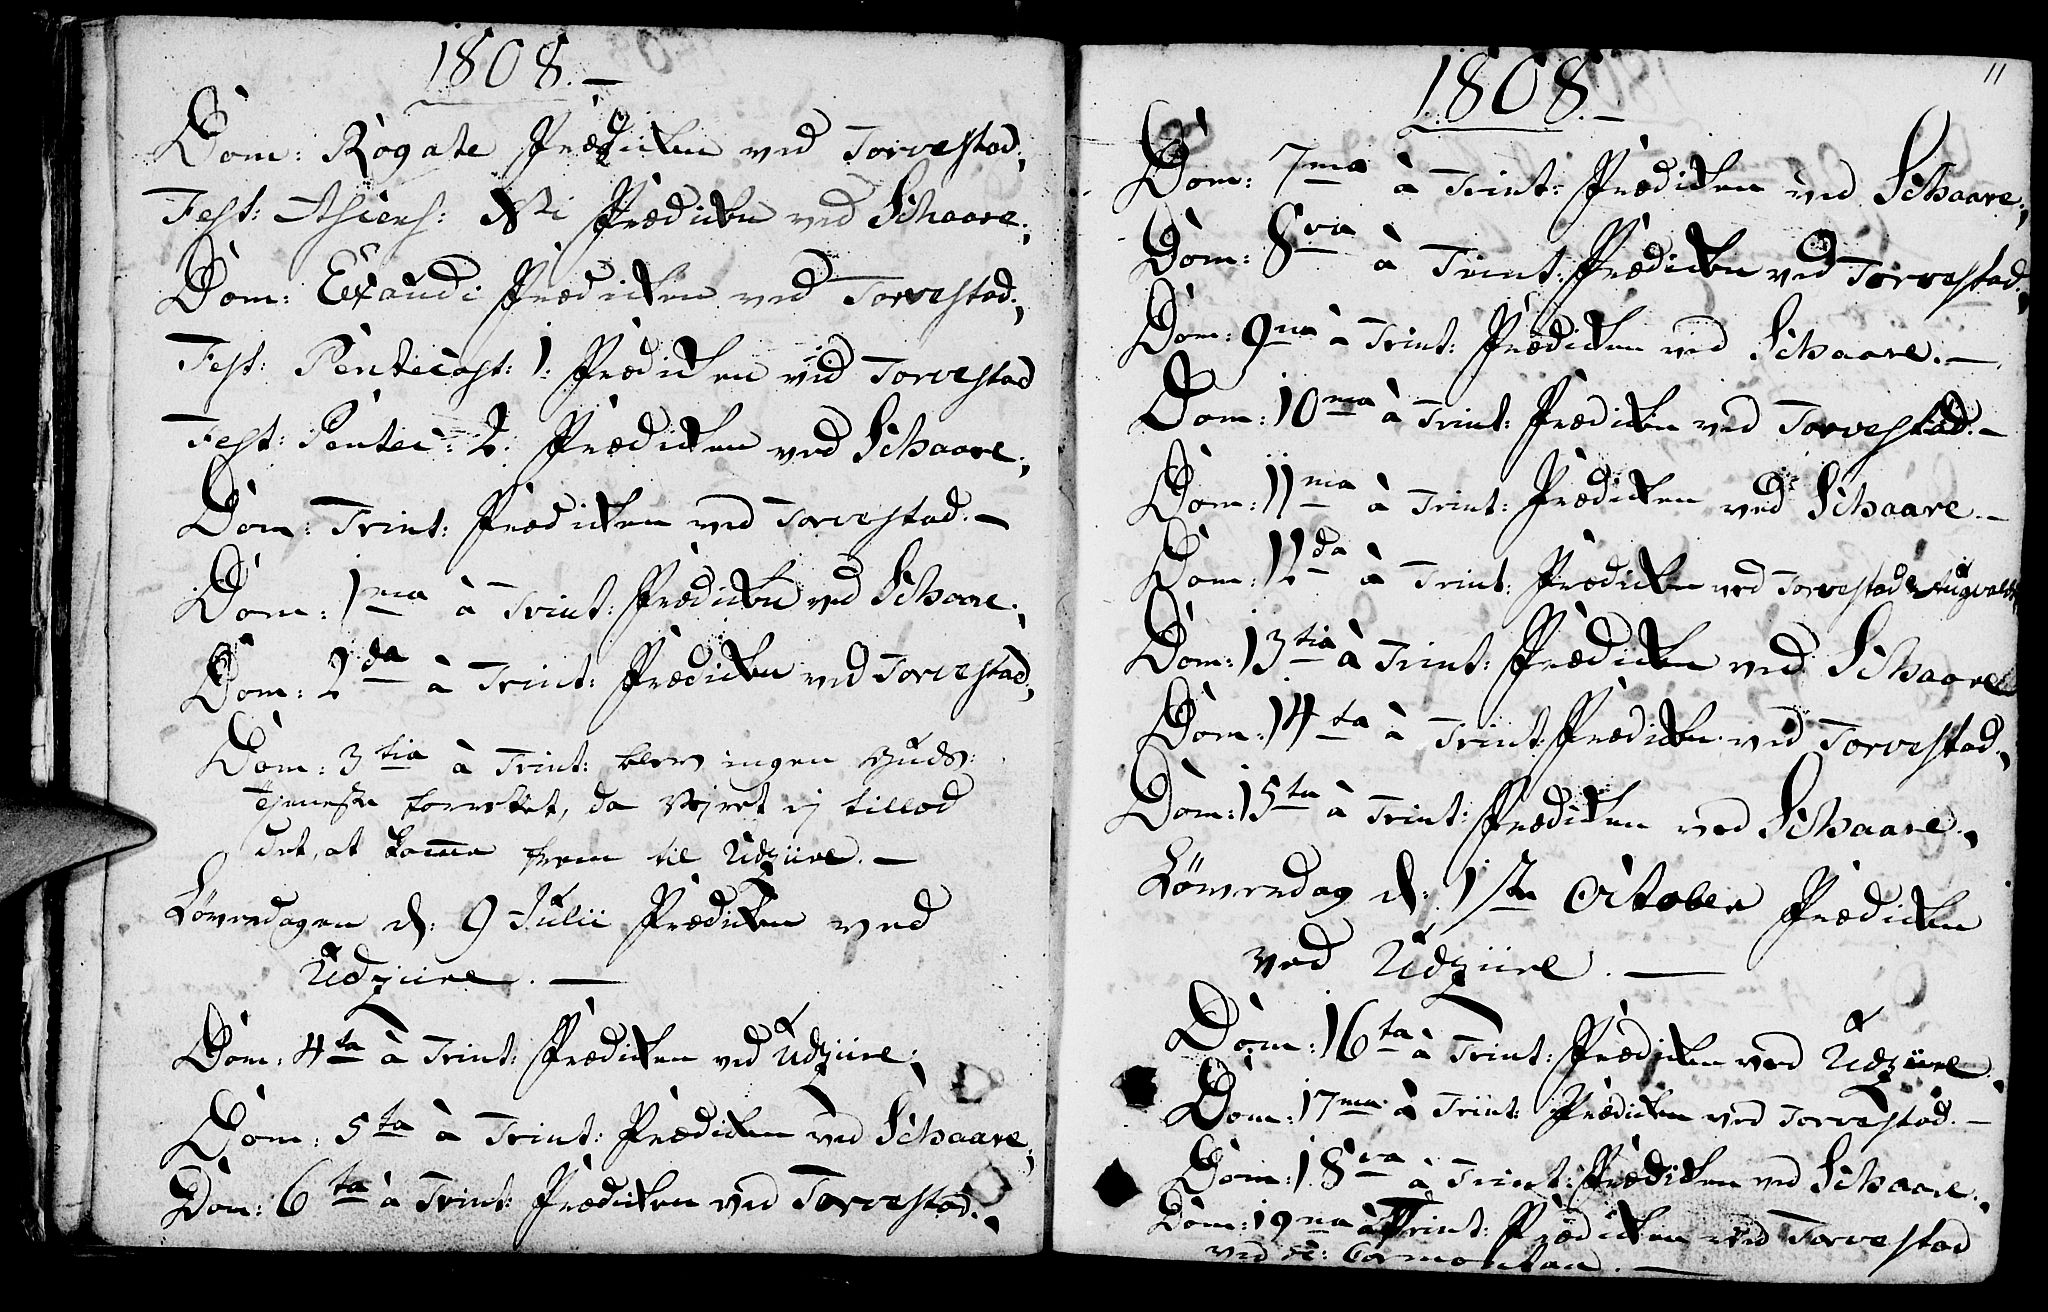 1808.—
Dom: Rogate Prædiken ved Torvestad.,
Fest: Ascens: Xti Prædiken ved Schaare.,
Dom: Exaudi Prædiken ved Torvestad.,
Fest: Pentecost: 1. Prædiken ved Torvestad
Fest: Pentec: 2. Prædiken ved Schaare.,
Dom: Trint: Prædiken ved Torvestad.—
Dom: 1ma à Trint: Prædiken ved Schaare.,
Dom: 2da à Trint: Prædiken ved Torvestad.,
Dom: 3tia à Trint: blev ingen Guds:
Tjeneste forrettet, da Vejret ej tillod
det, at komme frem til Udzüre.—
Løverdagen d: 9 Julii Prædiken ved
Udzüre.—
Dom: 4ta à Trint: Prædiken ved Udzüre.,
Dom: 5ta à Trint: Prædiken ved Schaare.,
Dom: 6ta à Trint: Prædiken ved Torvestad.,
11
1808.—
Dom: 7ma à Trint: Prædiken ved Schaare.,
Dom: 8va à Trint: Prædiken ved Torvestad.,
Dom: 9na à Trint: Prædiken ved Schaare.—
Dom: 10ma à Trint: Prædiken ved Torvestad.—
Dom: 11ma à Trint: Prædiken ved Schaare.—
Dom: 12da à Trint: Prædiken ved Torvestad
Dom: 13tia à Trint: Prædiken ved Schaare
Dom: 14ta à Trint: Prædiken ved Torvestad.,
Dom: 15ta à Trint: Prædiken ved Schaare.,
Løverdag d: 1ste October Prædiken
ved Udzüre.—
Dom: 16ta à Trint: Prædiken ved Udzüre.,
Dom: 17ma à Trint: Prædiken ved Torvestad.—
Dom: 18va à Trint: Prædiken ved Schaare.,
Dom: 19na à Trint: Prædiken ved Torvestad
ved Hr: Cormontan.—